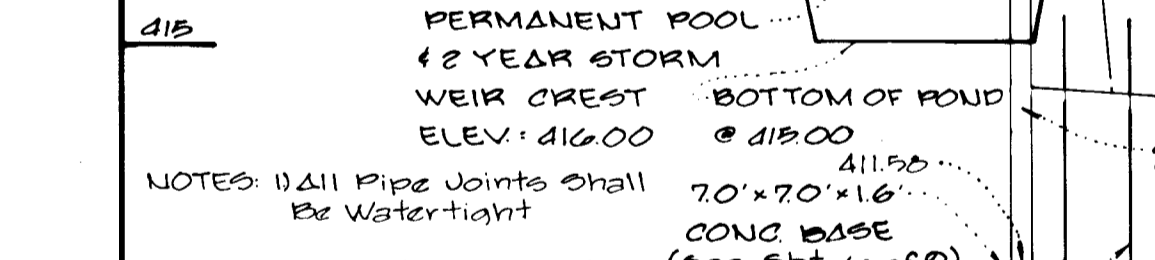 415
PERMANENT POOL
& 2 YEAR STORM
WEIR CREST
ELEV.: 416.00
BOTTOM OF POND
@ 415.00
411.58
7.0'x7.0'x1.6'
CONC. BASE
NOTES: 1) All Pipe Joints Shall
Be Watertight